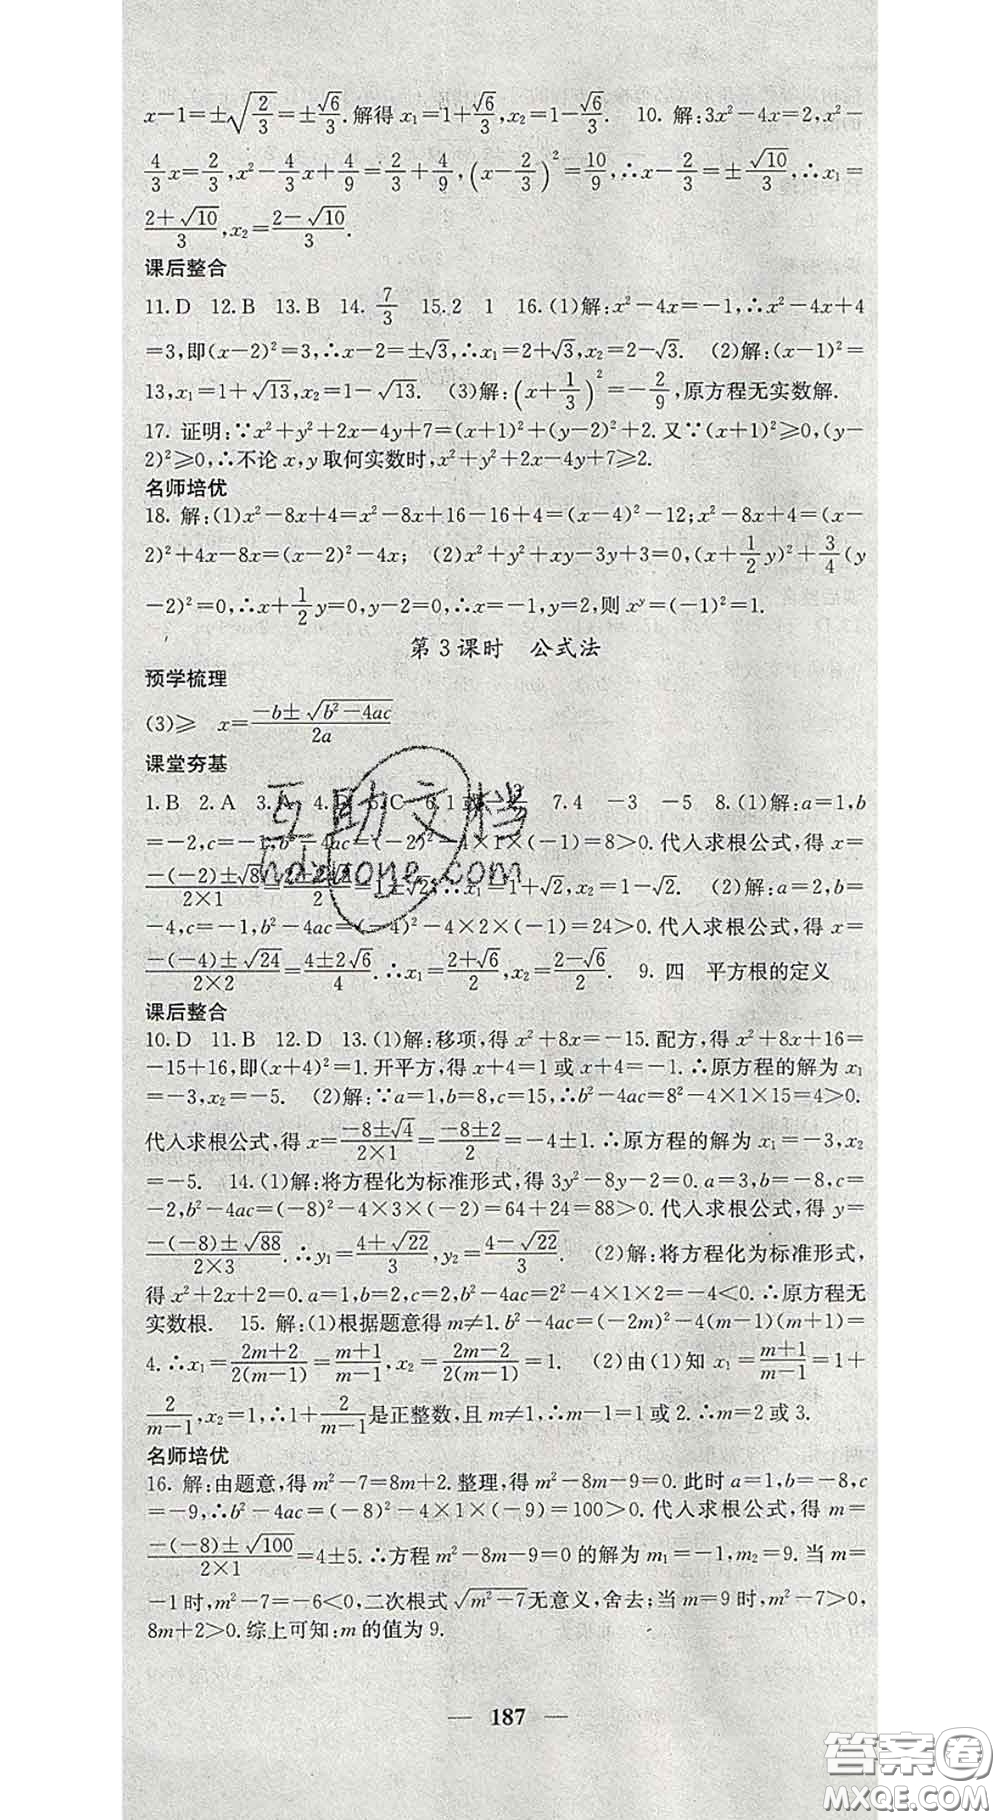 x−1=±√(2/3)=±√6/3.解得x₁=1+√6/3,x₂=1−√6/3. 10. 解:3x²−4x=2,x²−
4/3x=2/3,x²−4/3x+4/9=2/3+4/9,(x−2/3)²=10/9,∴x−2/3=±√10/3,∴x₁=
(2+√10)/3,x₂=(2−√10)/3.
课后整合
11.D 12.B 13.B 14.7/3 15.2 1 16.(1)解:x²−4x=−1,∴x²−4x+4
=3,即(x−2)²=3,∴x−2=±√3,∴x₁=2+√3,x₂=2−√3. (2)解:(x−1)²=
13,x₁=1+√13,x₂=1−√13. (3)解:(x+1/3)²=−2/9,原方程无实数解.
17. 证明:∵x²+y²+2x−4y+7=(x+1)²+(y−2)²+2.又∵(x+1)²≥0,(y−
2)²≥0,∴不论x,y取何实数时,x²+y²+2x−4y+7≥2.
名师培优
18. 解:(1)x²−8x+4=x²−8x+16−16+4=(x−4)²−12;x²−8x+4=(x−
2)²+4x−8x=(x−2)²−4x; (2)x²+y²+xy−3y+3=0,(x+1/2y)²+3/4(y
−2)²=0,∴x+1/2y=0,y−2=0,∴x=−1,y=2,则xʸ=(−1)²=1.
第3课时 公式法
预学梳理
(3)≥ x=(−b±√(b²−4ac))/2a
课堂夯基
1.B 2.A 3.A 4.D 5.C 6.1 7.4 −3 −5 8.(1)解:a=1,b
=−2,c=−1,b²−4ac=(−2)²−4×1×(−1)=8>0.代入求根公式,得x=
(−(−2)±√8)/(2×1)=1±√2,∴x₁=1+√2,x₂=1−√2. (2)解:a=2,b=
−4,c=−1,b²−4ac=(−4)²−4×2×(−1)=24>0.代入求根公式,得x=
(−(−4)±√24)/(2×2)=(4±2√6)/4.∴x₁=(2+√6)/2,x₂=(2−√6)/2. 9.四 平方根的定义
课后整合
10.D 11.B 12.D 13.(1)解:移项,得x²+8x=−15.配方,得x²+8x+16=
−15+16,即(x+4)²=1.开平方,得x+4=1或x+4=−1.∴原方程的解为x₁
=−3,x₂=−5. (2)解:∵a=1,b=8,c=15,∴b²−4ac=8²−4×1×15=4>0.
代入求根公式,得x=(−8±√4)/(2×1)=(−8±2)/2=−4±1.∴原方程的解为x₁=−3,x₂
=−5. 14.(1)解:将方程化为标准形式,得3y²−8y−2=0.a=3,b=−8,c=
−2,b²−4ac=(−8)²−4×3×(−2)=64+24=88>0.代入求根公式,得y=
(−(−8)±√88)/(2×3).∴y₁=(4+√22)/3,y₂=(4−√22)/3. (2)解:将方程化为标准形式,
得x²+2x+2=0.a=1,b=2,c=2,b²−4ac=2²−4×1×2=−4<0.∴原方程无
实数根. 15. 解:(1)根据题意得m≠1.b²−4ac=(−2m)²−4(m−1)(m+1)=
4.∴x₁=(2m+2)/(2(m−1))=(m+1)/(m−1),x₂=(2m−2)/(2(m−1))=1. (2)由(1)知x₁=(m+1)/(m−1)=1+
2/(m−1),x₂=1,∴1+2/(m−1)是正整数,且m≠1,∴m−1=1或2.∴m=2或3.
名师培优
16. 解:由题意,得m²−7=8m+2.整理,得m²−8m−9=0.此时a=1,b=−8,c
=−9,∴b²−4ac=(−8)²−4×1×(−9)=100>0.代入求根公式,得m=
(−(−8)±√100)/(2×1)=4±5.∴方程m²−8m−9=0的解为m₁=−1,m₂=9.当m=
−1时,m²−7=−6<0,二次根式√(m²−7)无意义,舍去;当m=9时,m²−7>0,
8m+2>0.综上可知:m的值为9.
— 187 —
互助文档
hdzuone.com
答案卷
MXQE.COM